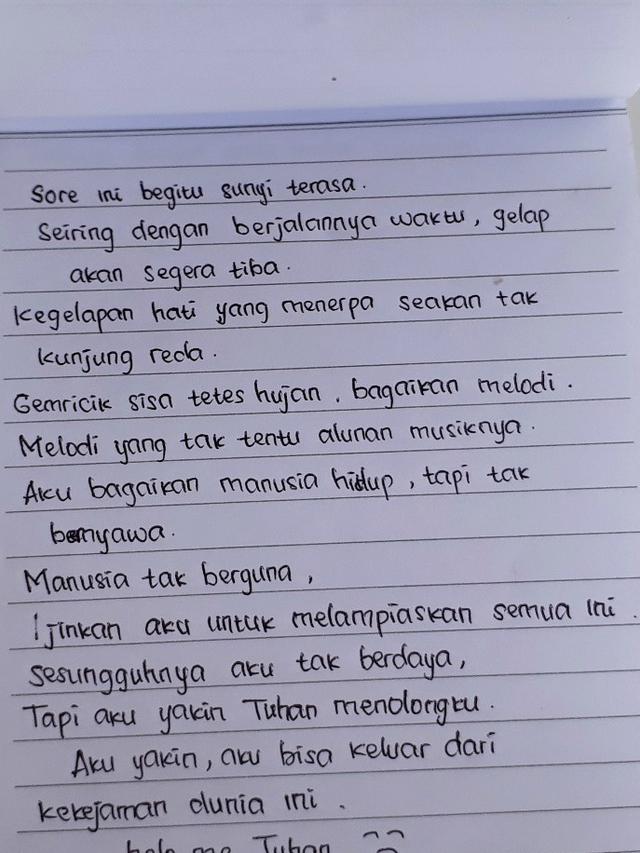 Sore ini begitu sunyi terasa.
Seiring dengan berjalannya waktu, gelap
akan segera tiba.
Kegelapan hati yang menerpa seakan tak
kunjung reda.
Gemricik sisa tetes hujan, bagaikan melodi.
Melodi yang tak tentu alunan musiknya.
Aku bagaikan manusia hidup, tapi tak
bernyawa.
Manusia tak berguna,
Ijinkan aku untuk melampiaskan semua ini.
Sesungguhnya aku tak berdaya,
Tapi aku yakin Tuhan menolongku.
Aku yakin, aku bisa keluar dari
kekejaman dunia ini.
help me Tuhan